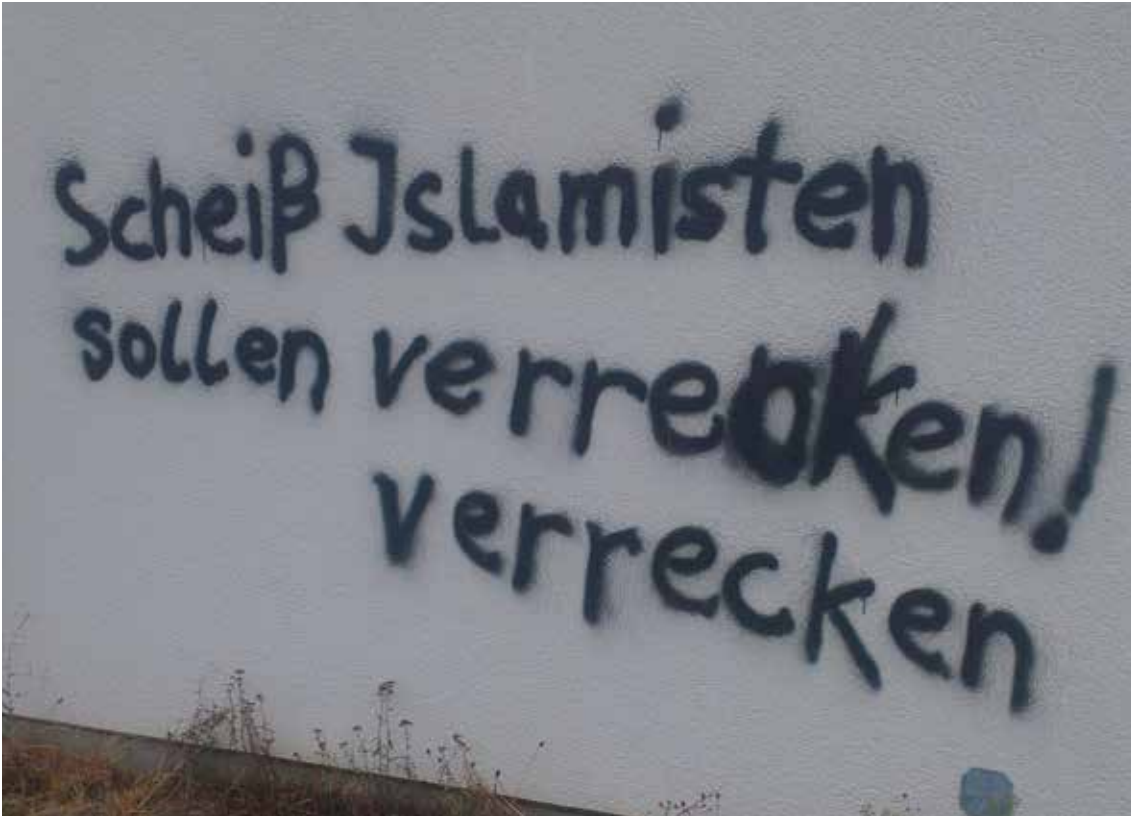 Scheiß Islamisten
sollen verrecken!
verrecken